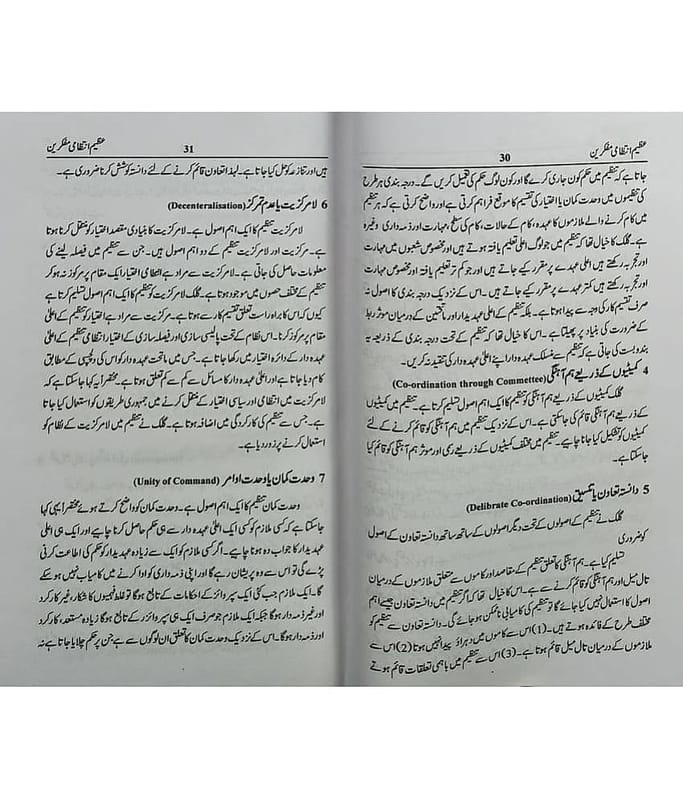 عظیم انتظامی مفکرین
30
جاتا ہے کہ تنظیم میں حکم کون جاری کرے گا اور کون لوگ حکم کی تعمیل کریں گے۔ درجہ بندی ہر طرح
کی تنظیموں میں وحدت کمان یا اختیار کی تقسیم کا موقع فراہم کرتی ہے اور واضح کرتی ہے کہ ہر تنظیم
میں کام کرنے والے ملازموں کا عہدہ، کام کے حالات، کام کی سطح، مہارت اور ذمہ داری وغیرہ
ہے۔ گلک کا خیال تھا کہ تنظیم میں جو لوگ اعلی تعلیم یافتہ ہوتے ہیں اور مخصوص شعبوں میں مہارت
اور تجربہ رکھتے ہیں اعلی عہدے پر مقرر کیے جاتے ہیں اور جو کم تر تعلیم یافتہ اور مخصوص مہارت
اور تجربہ رکھتے ہیں کمتر عہدے پر مقرر کیے جاتے ہیں۔ اس کے نزدیک درجہ بندی کا اصول نہ
صرف تقسیم کار کی وجہ سے پیدا ہوتا ہے۔ بلکہ تنظیم کے اعلی عہدیدار اور ماتحتین کے درمیان موثر ربط
کے ضرورت کی بنیاد پر پھیلتا ہے۔ اس کا خیال تھا کہ تنظیم کے تحت درجہ بندی کے ذریعہ یہ
بندوبست کی جاتی ہے کہ تنظیم سے منسلک عہدہ دار اپنے اعلی عہدہ دار کی تنقید نہ کریں۔
4 کمیٹیوں کے ذریعے ہم آہنگی (Co-ordination through Commettee)
گلک کمیٹیوں کے ذریعے ہم آہنگی کو تنظیم کا ایک اہم اصول تسلیم کرتا ہے۔ تنظیم میں کمیٹیوں
کے ذریعے ہم آہنگی قائم کی جاسکتی ہے۔ اس کے نزدیک تنظیم میں ہم آہنگی کو قائم کرنے کے لئے
کمیٹیوں کو تشکیل کیا جانا چاہیے۔ تنظیم میں مختلف کمیٹیوں کے ذریعے رسمی اور موثر ہم آہنگی کو قائم کیا
جاسکتا ہے۔
5 دانستہ تعاون یا تنسیق (Delibrate Co-ordination)
گلک نے تنظیم کے اصولوں کے تحت دیگر اصولوں کے ساتھ ساتھ دانستہ تعاون کے اصول
کو ضروری
تسلیم کیا ہے۔ ہم آہنگی کا تعلق تنظیم کے مقاصد اور کاموں سے متعلق ملازموں کے درمیان
تال میل اور ہم آہنگی کو قائم کرنے سے ہے۔ اس کا خیال تھا کہ اگر تنظیم میں دانستہ تعاون جیسے اہم
اصول کا استعمال نہیں کیا جائے گا تو تنظیم کی کامیابی ناممکن ہو جائے گی۔ دانستہ تعاون سے تنظیم کو
مختلف طرح کے فائدہ ہوتے ہیں۔ (1) اس سے کاموں میں دہراؤ پیدا نہیں ہوتا (2) اس سے
ملازموں کے درمیان تال میل قائم ہوتا ہے۔ (3) اس سے تنظیم میں باہمی تعلقات قائم ہوتے
عظیم انتظامی مفکرین
31
ہیں اور تنازعہ کو حل کیا جاتا ہے۔ لہذا تعاون قائم کرنے کے لئے دانستہ کوشش کرنا ضروری ہے۔
6 لامرکزیت یا عدم تمرکز (Decenteralisation)
لامرکزیت تنظیم کا ایک اہم اصول ہے۔ لامرکزیت کا بنیادی مقصد اختیار کو منتقل کرنا ہوتا
ہے۔ مرکزیت اور لامرکزیت تنظیم کے دو اہم اصول ہیں۔ جن سے تنظیم میں فیصلہ لینے کی
معلومات حاصل کی جاتی ہے۔ لامرکزیت سے مراد ہے انتظامی اختیار ایک مقام پر مرکوز نہ ہو کر
تنظیم کے مختلف حصوں میں موجود ہوتا ہے۔ گلک لامرکزیت کو تنظیم کا ایک اہم اصول تسلیم کرتا ہے
کیوں کہ اس کا براہ راست تعلق تقسیم کار سے ہوتا ہے۔ مرکزیت سے مراد ہے اختیار کو تنظیم کے اعلی
مقام پر مرکوز کرنا۔ اس نظام کے تحت پالیسی سازی اور فیصلہ سازی کے اختیار انتظامی تنظیم کے اعلی
عہدہ دار کے دائرہ اختیار میں رکھا جاتا ہے۔ جس میں ماتحت عہدہ دار کو اس کی دلچسپی کے مطابق
کام دیا جاتا ہے اور اعلی عہدہ دار کا مسائل سے کم سے کم تعلق ہوتا ہے۔ مختصراً یہ کہا جاسکتا ہے کہ
لامرکزیت میں انتظامی اور سیاسی اختیار کے منتقل کرنے میں جمہوری طریقوں کو استعمال کیا جاتا
ہے۔ جس سے تنظیم کی کارکردگی میں اضافہ ہوتا ہے۔ گلک نے تنظیم میں لامرکزیت کے نظام کو
استعمال کرنے پر زور دیا ہے۔
7 وحدت کمان یا وحدت اوامر (Unity of Command)
وحدت کمان تنظیم کا ایک اہم اصول ہے۔ وحدت کمان کو واضح کرتے ہوئے مختصراً یہی کہا
جاسکتا ہے کہ کسی ملازم کو کسی ایک اعلی عہدہ دار سے ہی حکم حاصل کرنا چاہیے اور ایک ہی اعلی
عہدیدار کا جواب دہ ہونا چاہیے۔ اگر کسی ملازم کو ایک سے زیادہ عہدیدار کو حکم کی اطاعت کرنی
پڑے گی تو اس سے وہ پریشان رہے گا اور اپنی ذمہ داری کو ادا کرنے میں کامیاب نہیں ہو سکے
گا۔ ایک ملازم جب کئی ایک سپروائزر کے احکامات کے تابع ہوگا تو غلط فہمیوں کا شکار، غیر کارکرد
اور غیر ذمہ دار ہوگا جبکہ ایک ملازم جو صرف ایک ہی سپروائزر کے تابع ہوگا زیادہ مستعد، کارکرد
اور ذمہ دار ہوگا۔ اس کے نزدیک وحدت کمان کا تعلق ان لوگوں سے ہے جن پر حکم چلایا جاتا ہے نہ